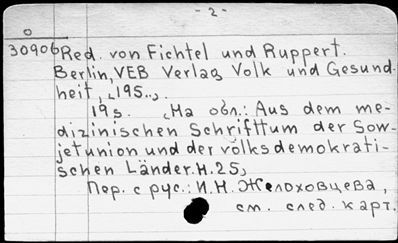 - 2 -
0
30906 Red. von Fichtel und Ruppert.
Berlin, VEB Verlag Volk und Gesund-
heit, „195..„
19 s. „На обл.: Aus dem me-
dizinischen Schrifttum der Sow-
jetunion und der volksdemokrati-
schen Länder. H. 25„
Пер. с рус.: И.Н. Желоховцева,
см. след. карт.